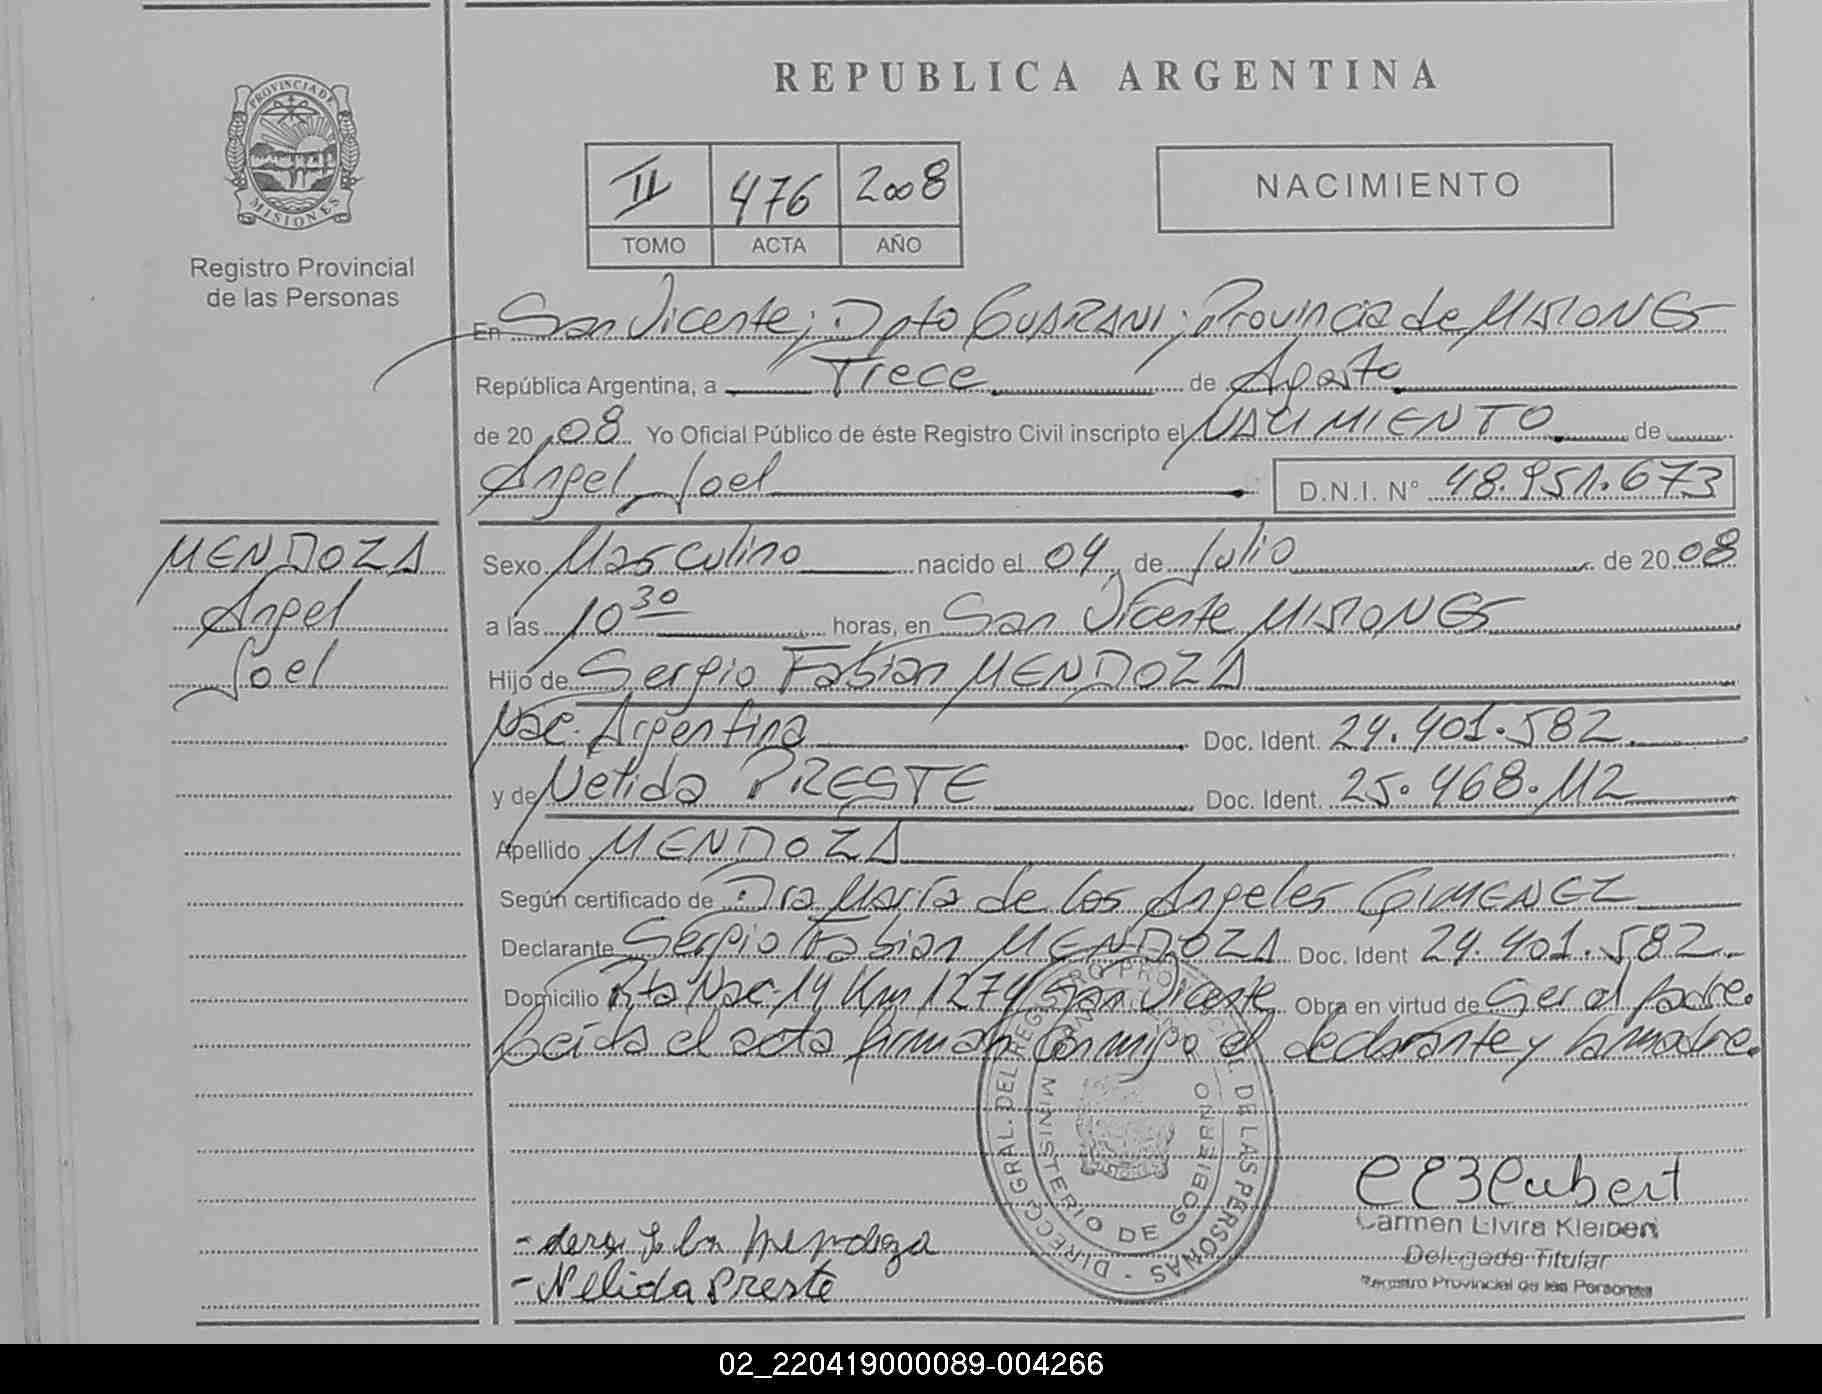 PROVINCIA DE
MISIONES
Registro Provincial
de las Personas
REPUBLICA ARGENTINA
II 476 2008
TOMO ACTA AÑO
NACIMIENTO
En San Vicente; Dpto GUARANI; Provincia de MISIONES
República Argentina, a Trece de Agosto
de 2008 Yo Oficial Público de éste Registro Civil inscripto el NACIMIENTO de
Angel Joel D.N.I. N° 48.951.673
MENDOZA
Angel
Joel
Sexo Masculino nacido el 04 de Julio de 2008
a las 10 30 horas, en San Vicente MISIONES
Hijo de Sergio Fabian MENDOZA
Nac. Argentina Doc. Ident. 24.401.582
y de Nelida PRESTE Doc. Ident. 25.468.112
Apellido MENDOZA
Según certificado de Dra María de los Angeles GIMENEZ
Declarante Sergio Fabian MENDOZA Doc. Ident 24.401.582
Domicilio Rta Nac. 14 Km 1274 San Vicente Obra en virtud de Ser el padre.
Leída el acta firman conmigo el declarante y la madre.
DIRECC. GRAL. DEL REGISTRO PROVINCIAL DE LAS PERSONAS
MINISTERIO DE GOBIERNO
Carmen Elvira
Delegada Titular
Registro Provincial de las Personas
- Mendoza
- Nelida Preste
02_220419000089-004266